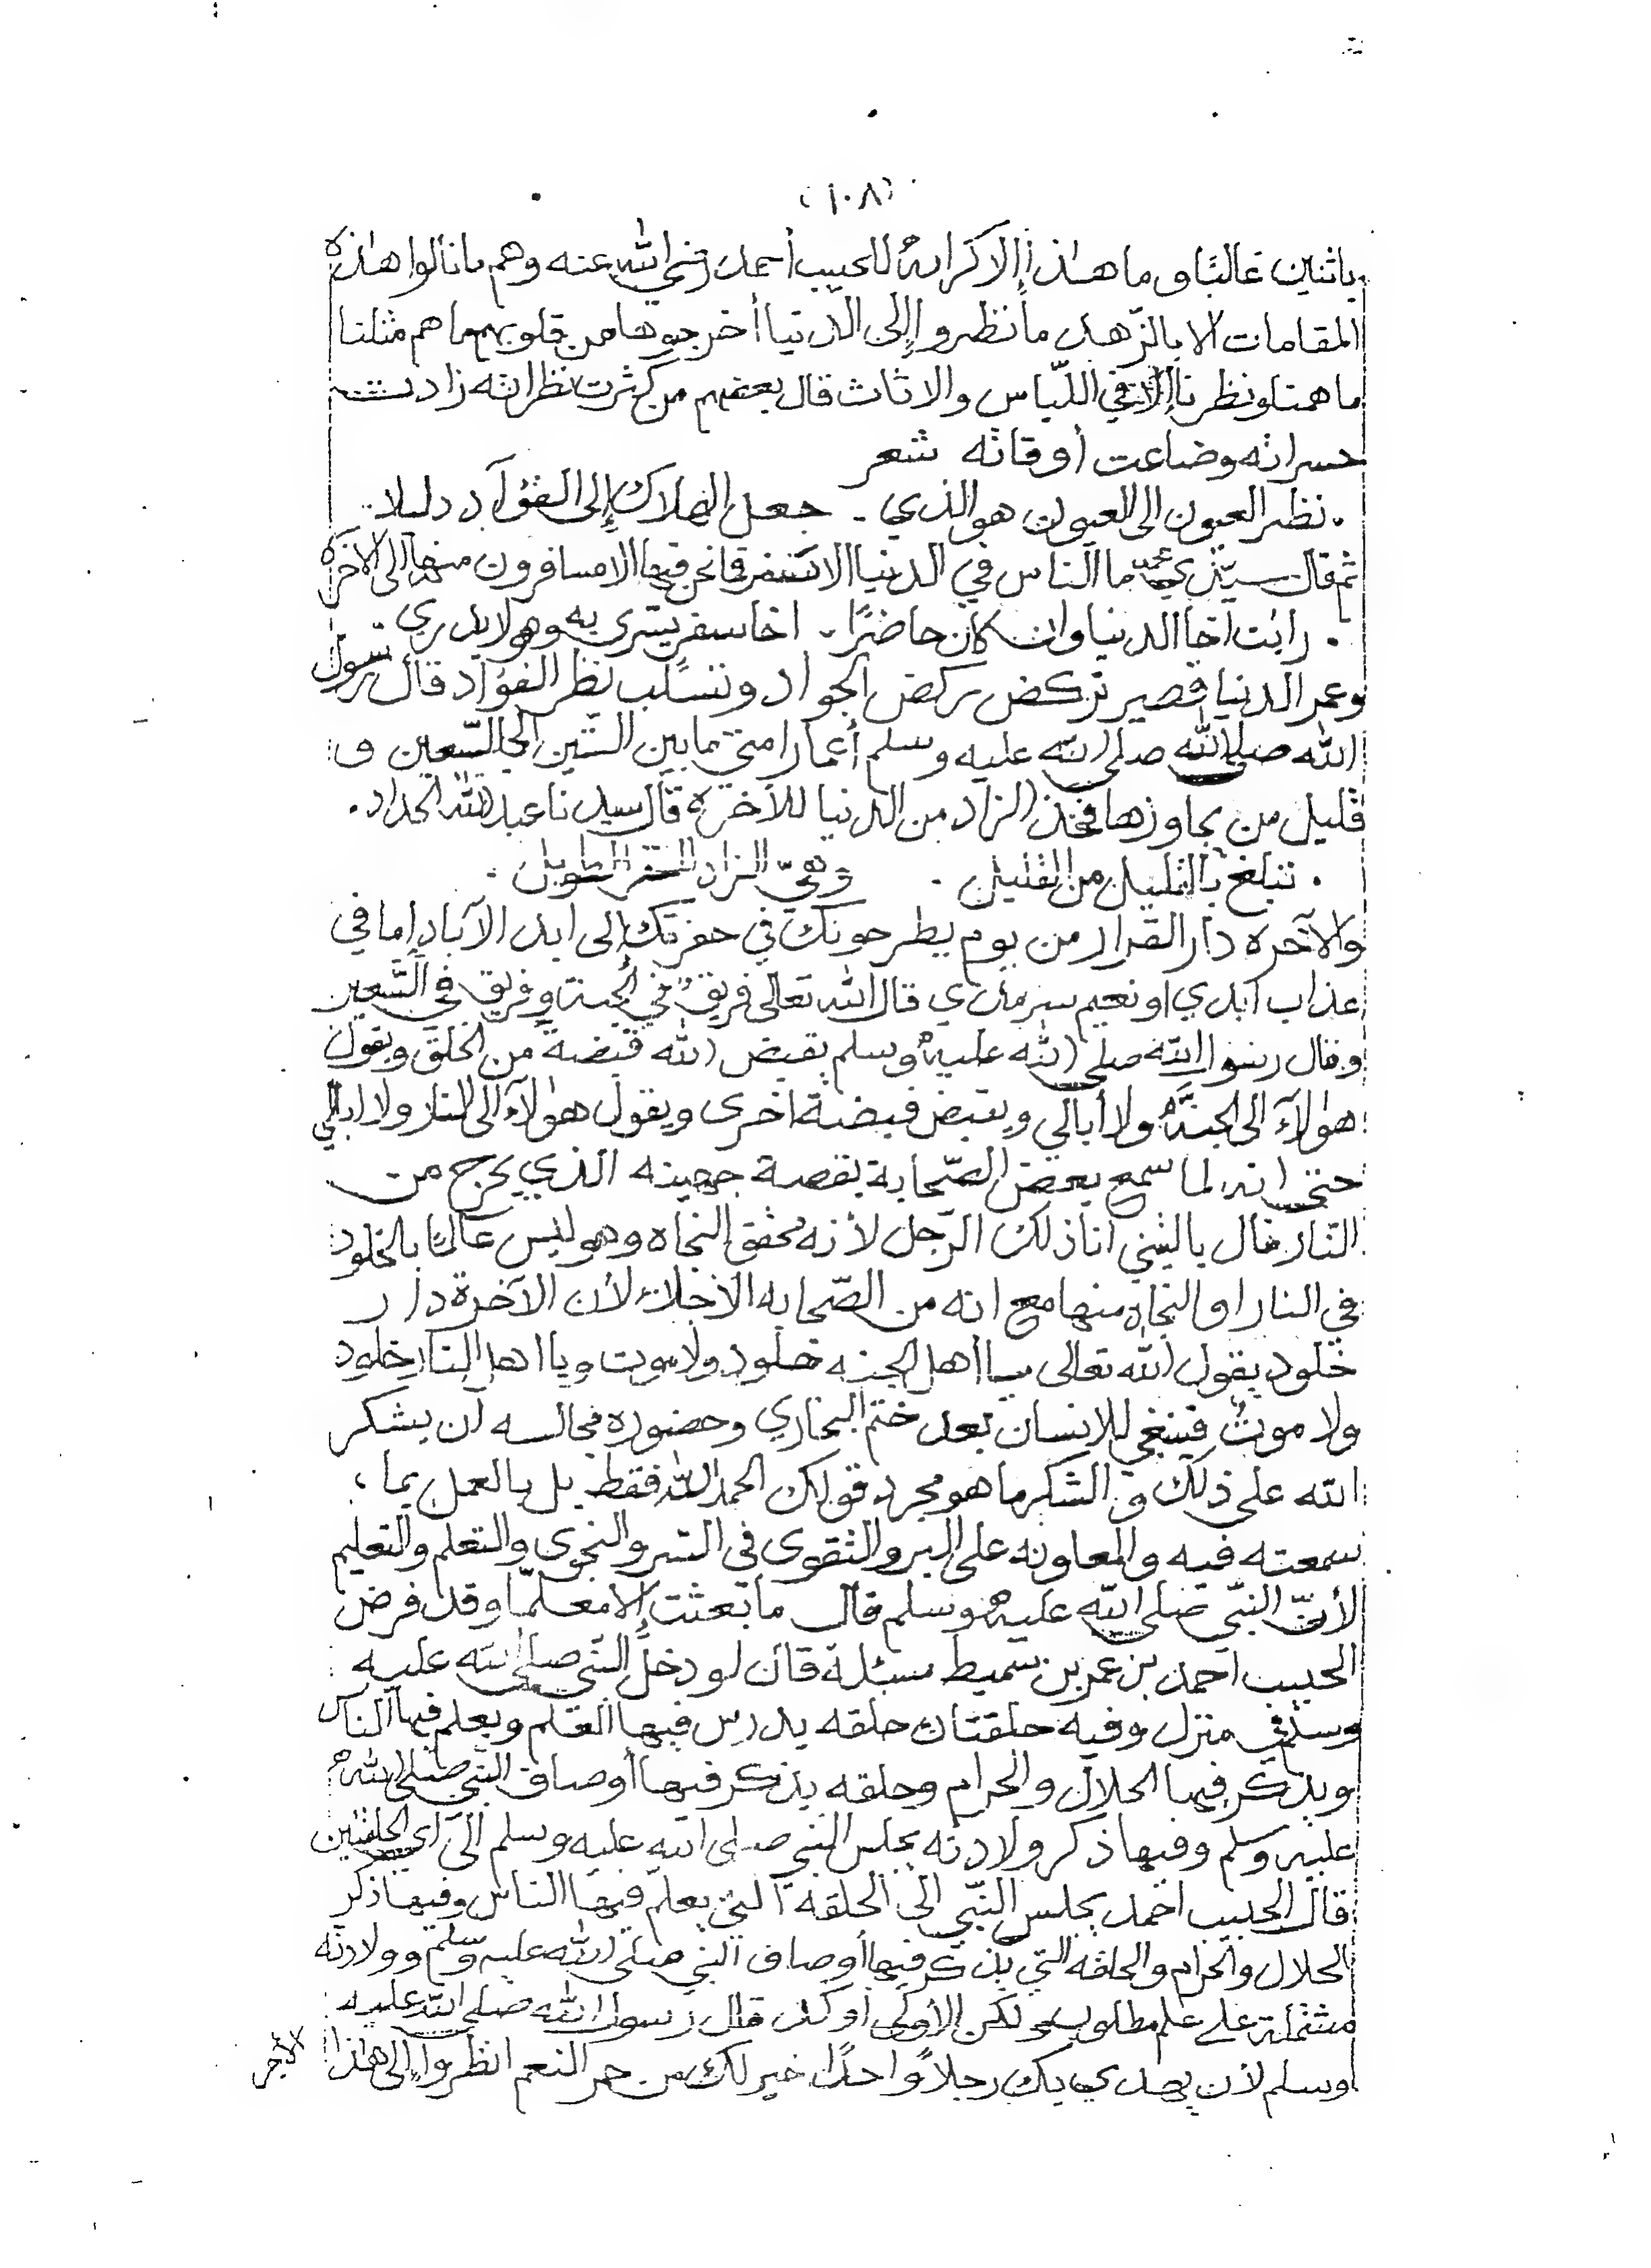 (١٠٨)
باثنين غالبًا وما هٰذا إلا كرامة للحبيب أحمد رضي الله عنه وهم ما نالوا هٰذه
المقامات الا بالزّهد ما نظروا إلى الدنيا أخرجوها من قلوبهم ما هم مثلنا
ما همتنا ونظرنا إلا في اللّباس والاثاث قال بعضهم من كثرت نظراته زادت
حسراته وضاعت أوقاته شعر
. نظر العيون الى العيون هو الذي . جعل الهلاك إلى الفؤآد دليلا .
ثم قال سيّدي محمد ما النّاس في الدنيا الا كسفر فما نحن فيها الا مسافرون منها إلى الآخره
. رايت اخا الدنيا وان كان حاضرًا . اخا سفر يسرى به وهو لا يدري .
وعمر الدنيا قصير تركض ركض الجواد وتنسلب نظر الفؤآد قال رسول
الله صلى الله صلى الله عليه وسلم أعمار امتي ما بين السّتين الى السّبعين و
قليل من يجاوزها فخذ الزاد من الدنيا للآخره قال سيدنا عبد الله الحداد .
. تبلغ بالقليل من القليل . وهيّ الزاد للسفر الطويل .
والآخره دار القرار من يوم يطرحونك في حفرتك إلى ابد الآباد إما في
عذاب آبدي او نعيم سرمدي قال الله تعالى فريق في الجنة وفريق في السّعير
وقال رسول الله صلى الله عليه وسلم يقبض الله قبضة من الخلق ويقول
هولآء الى الجنّة ولا أبالي ويقبض قبضة اخرى ويقول هولآء الى النار ولا ابالي
حتى انه لما سمع بعض الصّحابة بقصة جهينه الذي يخرج من
النّار قال ياليتني انا ذلك الرّجل لأنه محقق النجاه وهو ليس عالمًا بالخلود
في النار او النجاه منها مع انه من الصّحابه الأجلاء لأن الآخرة دار
خلود يقول الله تعالى يا أهل الجنه خلود ولا موت ويا اهل النار خلود
ولا موت فينبغي للإنسان بعد ختم البخاري وحضوره مجالسه أن يشكر
الله على ذلك و الشكر ما هو مجرد قولك الحمد لله فقط بل بالعمل بما
سمعته فيه والمعاونه على البر والتقوى في السر والنجوى والتعلم والتعليم
لأنّ النبّي صلى الله عليه وسلم قال ما بعثت إلا معلّما وقد فرض
الحبيب احمد بن عمر بن سميط مسئلة قال لو دخل النّبي صلى الله عليه
وسلم في منزل وفيه حلقتان حلقه يدرس فيها العلم ويعلم فيها النّاس
ويذكر فيها الحلال والحرام وحلقه يذكر فيها أوصاف النّبي صلى الله
عليه وسلم وفيها ذكر ولادته يجلس النبي صلى الله عليه وسلم الى أي الحلقتين
قال الحبيب احمد يجلس النّبي الى الحلقه التي يعلم فيها الناس وفيها ذكر
الحلال والحرام والحلقه التي يذكر فيها أوصاف النبي صلى الله عليه وسلم وولادته
مشتملة على علم مطلوب لكن الأولى أوكد قال رسول الله صلى الله عليه
وسلم لأن يهدي بك رجلاً واحدًا خير لك من حمر النعم انظروا إلى هٰذا الأجر